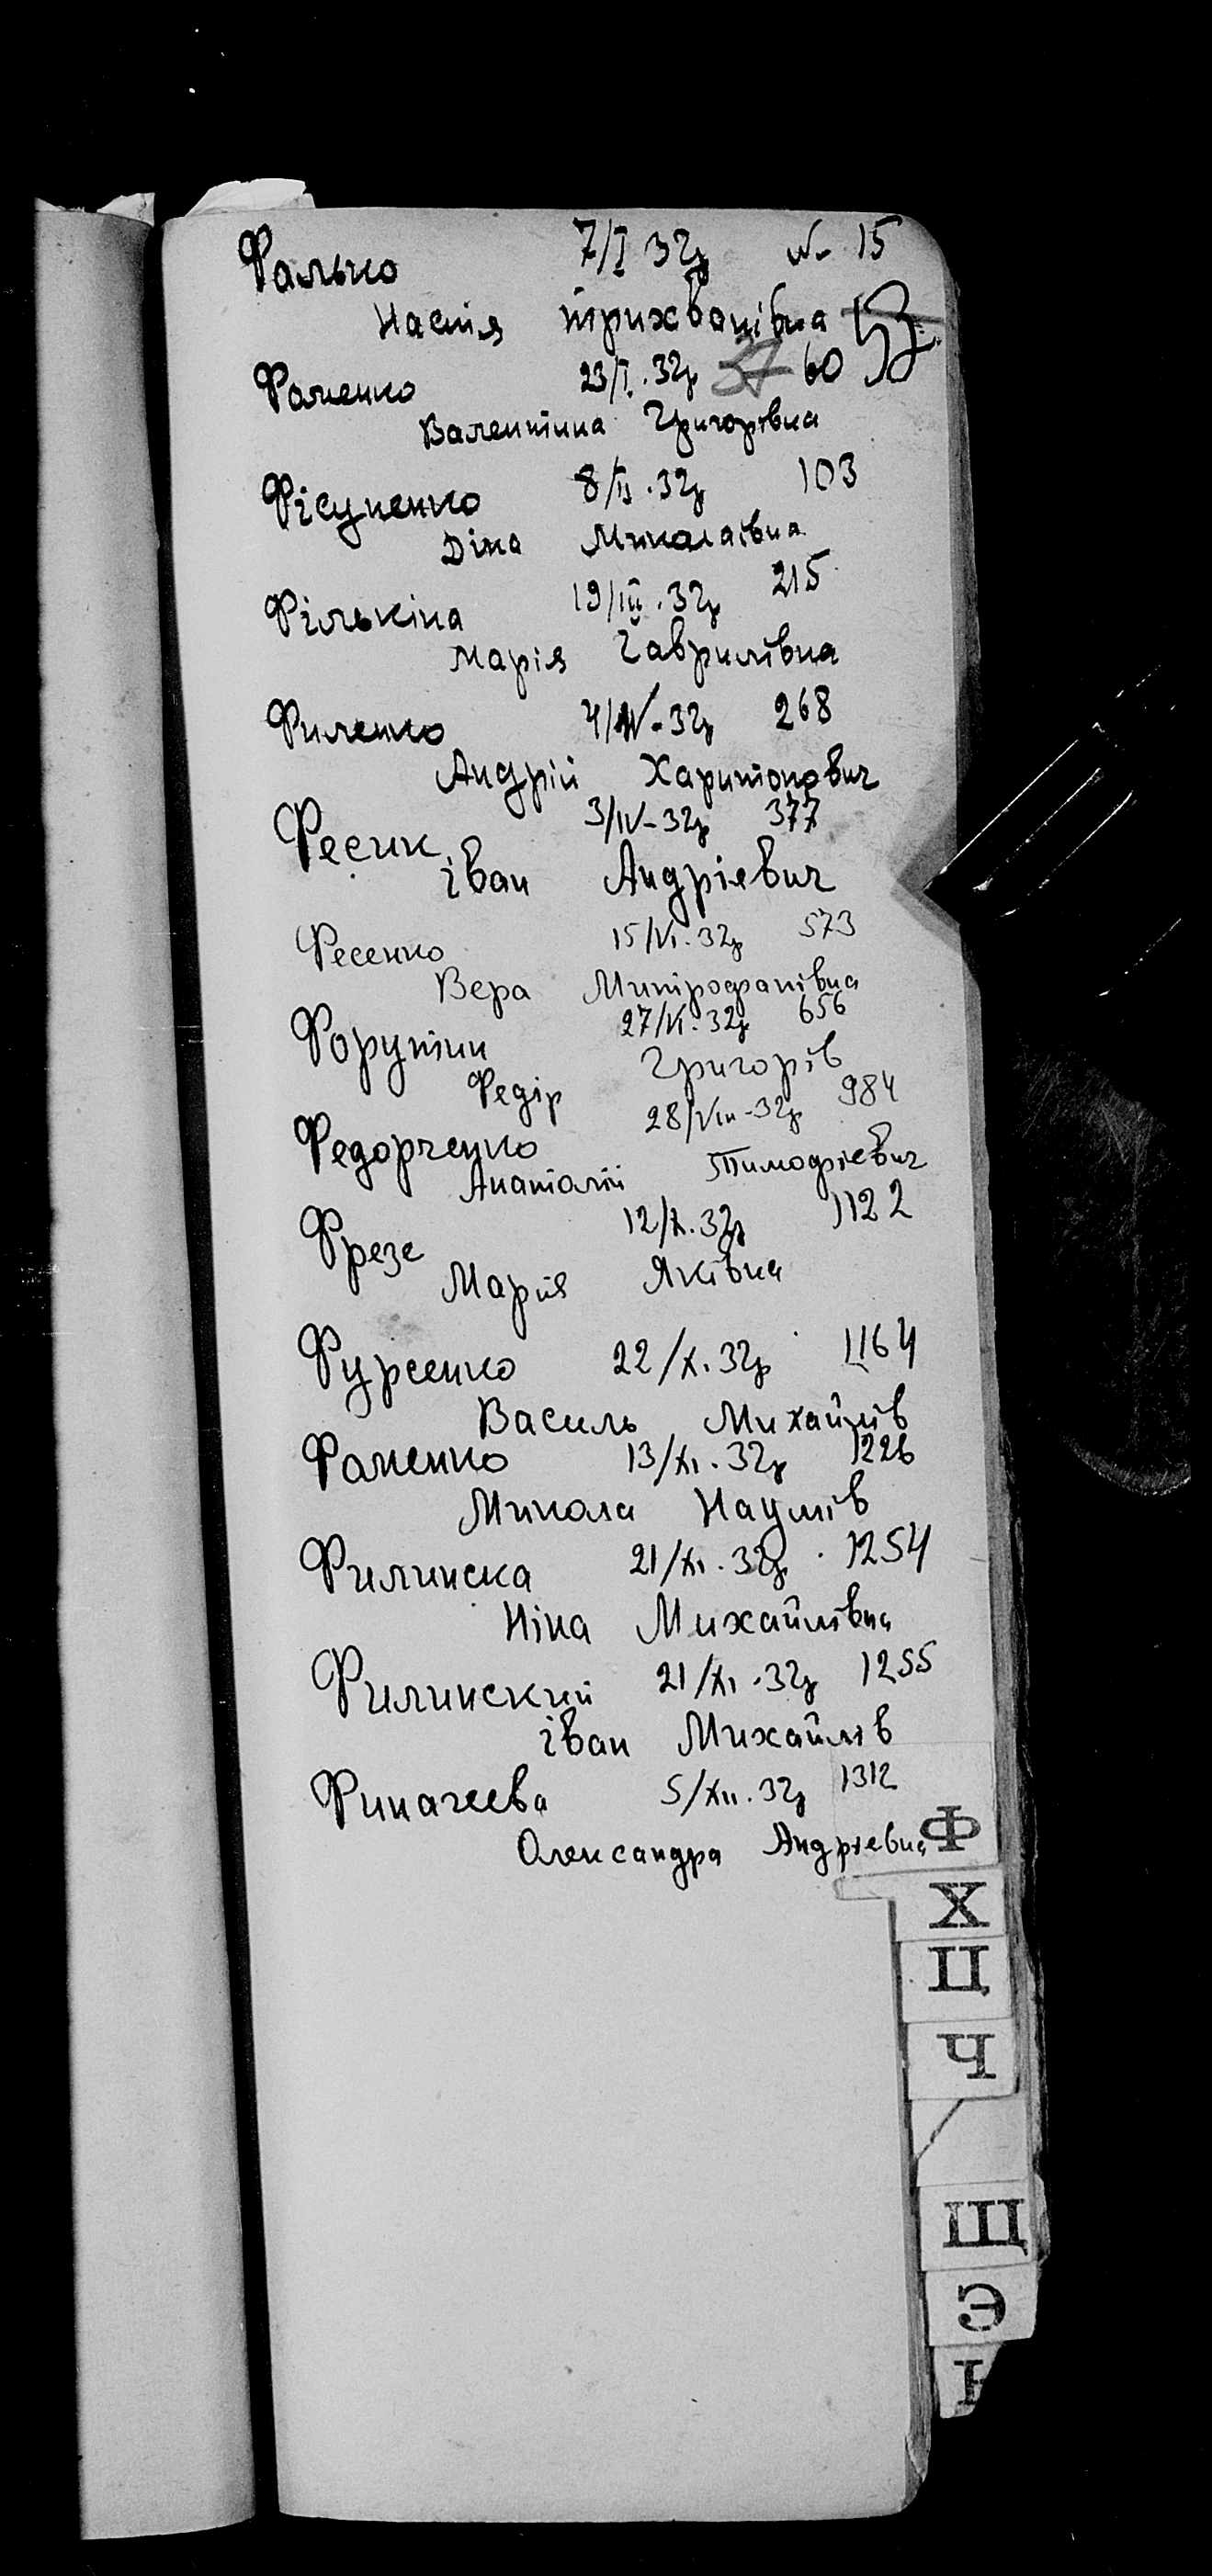 Фалько 7/I 32р № 15
Настя трихванівна
53
Фоменко 23/I.32р 37 60
Валентина Григорівна
Фісуненко 8/II.32р 103
Діна Миколаівна
Фількіна 19/III.32р 215
Марія Гаврилівна
Филенко 4/IV-32р 268
Андрій Харитонович
Фесик 3/IV-32р 377
Іван Андріевич
Фесенко 15/VI.32р 573
Вера Митрофанівна
Форутін 27/VI.32р 656
Федір Григорів
Федорченко 28/VIII-32р 984
Анатолій Тимофіевич
Фрезе 12/X.32р 1122
Марія Яківна
Фурсенко 22/X.32р 1164
Василь Михайлів
Фоменко 13/XI.32р 1226
Микола Наумів
Филинска 21/XI.32р 1254
Ніна Михайлівна
Филинский 21/XI.32р 1255
Іван Михайлів
Финагеева 5/XII.32р 1312
Олександра Андріевна
Ф
Х
Ц
Ч
Щ
Э